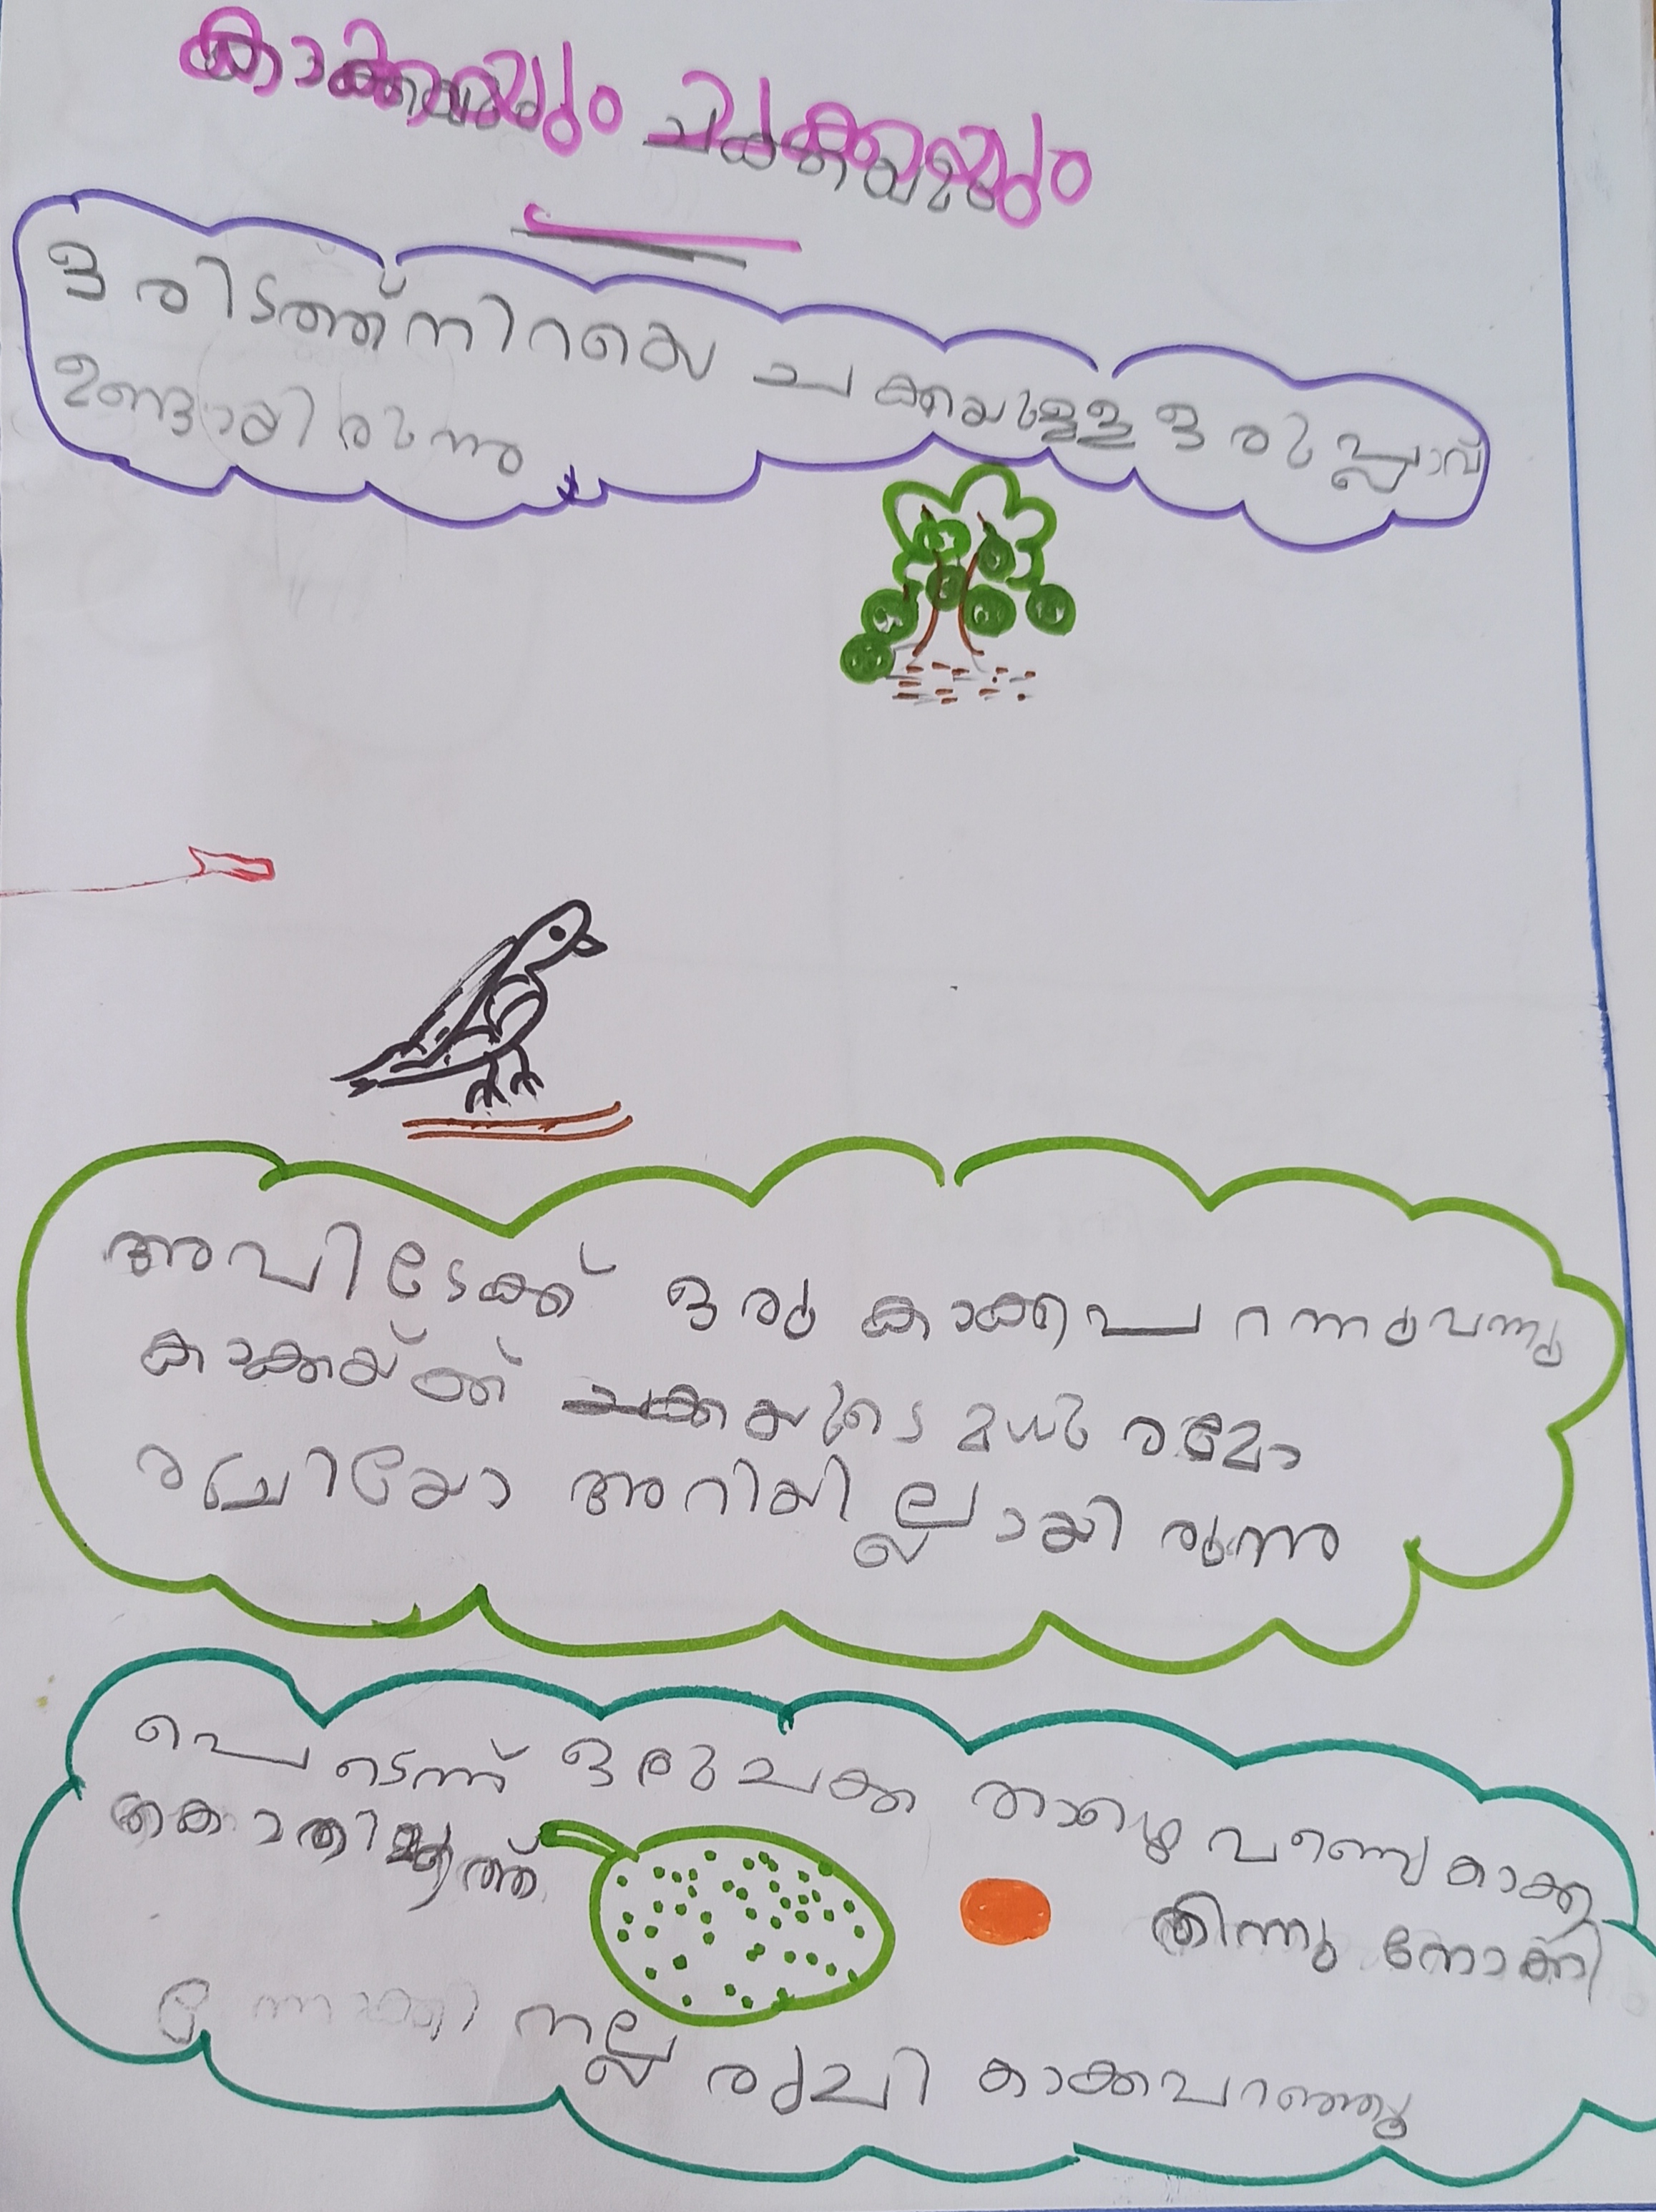 കാക്കയും ചക്കയും
ഒരിടത്ത് നിറയെ ചക്കയുള്ള ഒരു പ്ലാവ്
ഉണ്ടായിരുന്നു
അവിടേക്ക് ഒരു കാക്ക പറന്നുവന്നു
കാക്കയ്ക്ക് ചക്കയുടെ മധുരമോ
രുചിയോ അറിയില്ലായിരുന്നു
പെടെന്ന് ഒരു ചക്ക താഴെ വണ്ണെ കാക്ക
കൊതിമൂത്ത് തിന്നു നോക്കി
നല്ല രുചി കാക്ക പറഞ്ഞു